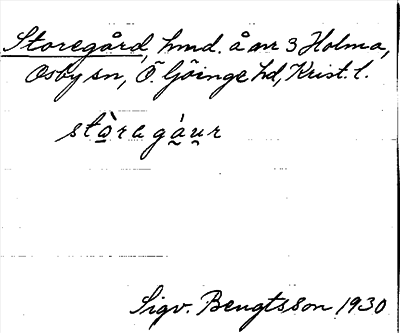 Storegård, hmd. å nr 3 Holma,
Osby sn, Ö. Göinge hd, Krist. l.
stò̱ragà̰ṵr
Sigv. Bengtsson 1930